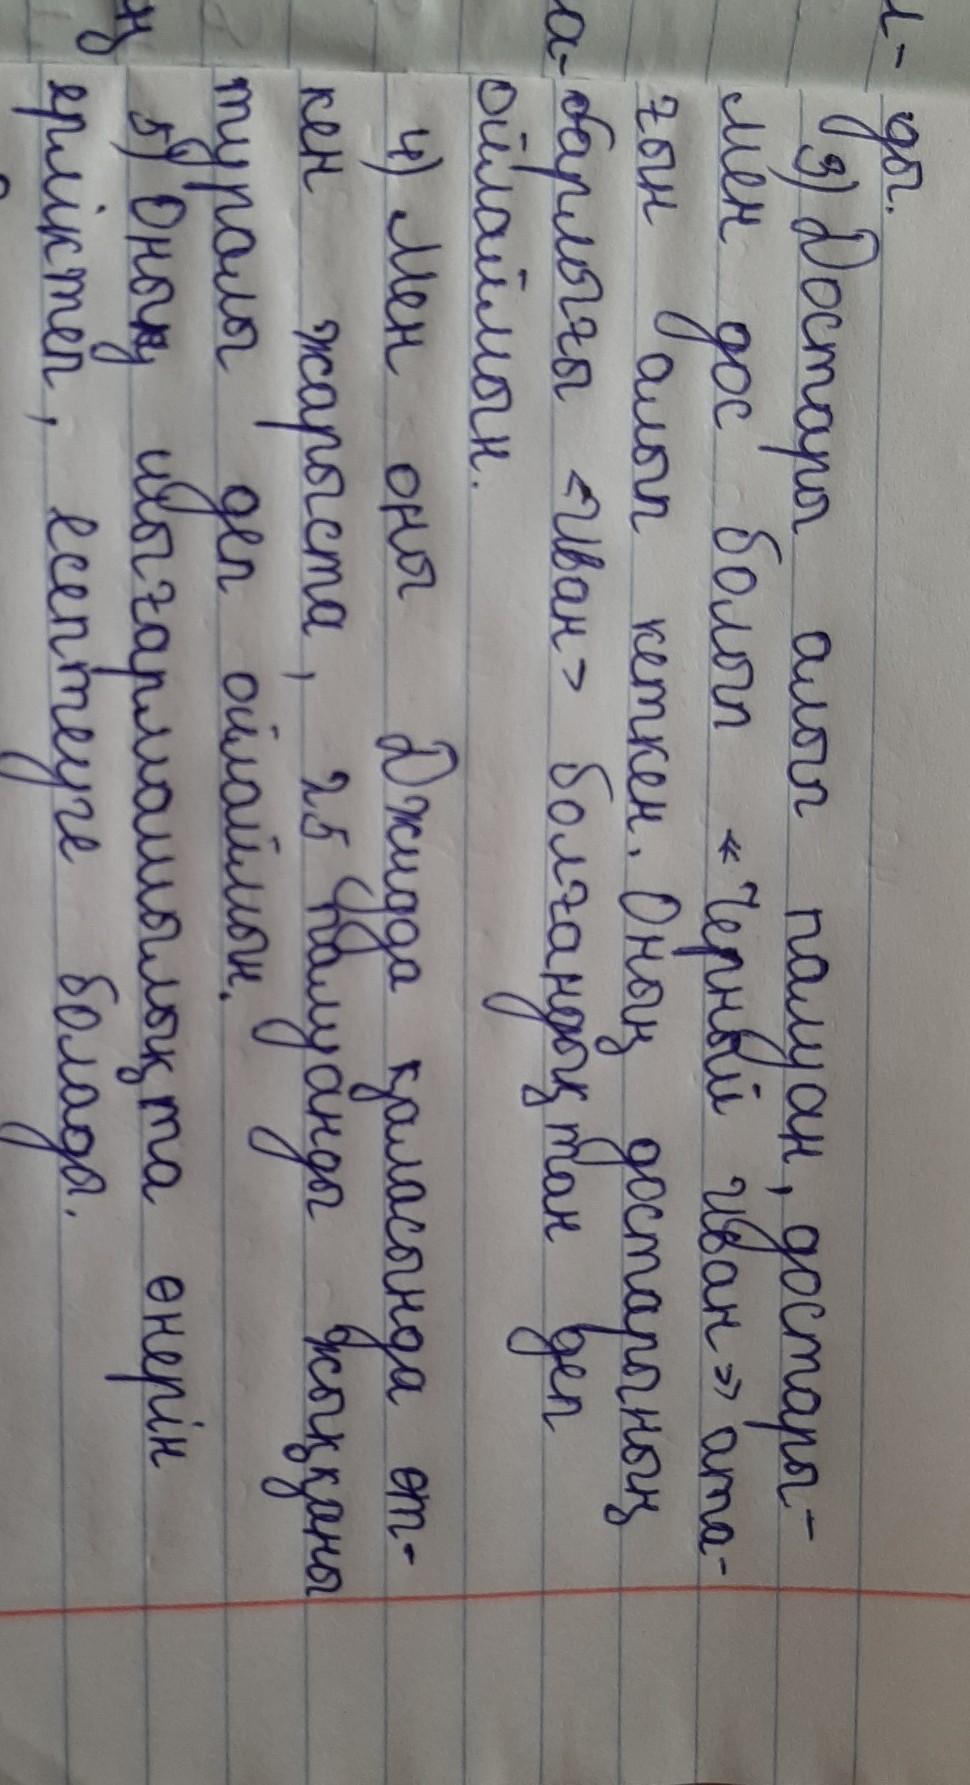 ды.
3) Достары алып палуан, достары-
мен дос болып «Черный иван» ата-
ғын алып кеткен. Оның достарының
барлығы <Иван> болғандықтан деп
ойлаймын.
4) Мен оны Джидда қаласында өт-
кен жарыста, 25 палуанды жыққаны
туралы деп ойлаймын.
5) Оның шығармашылықта өнерін
ерліктеп, есептеуге болады.